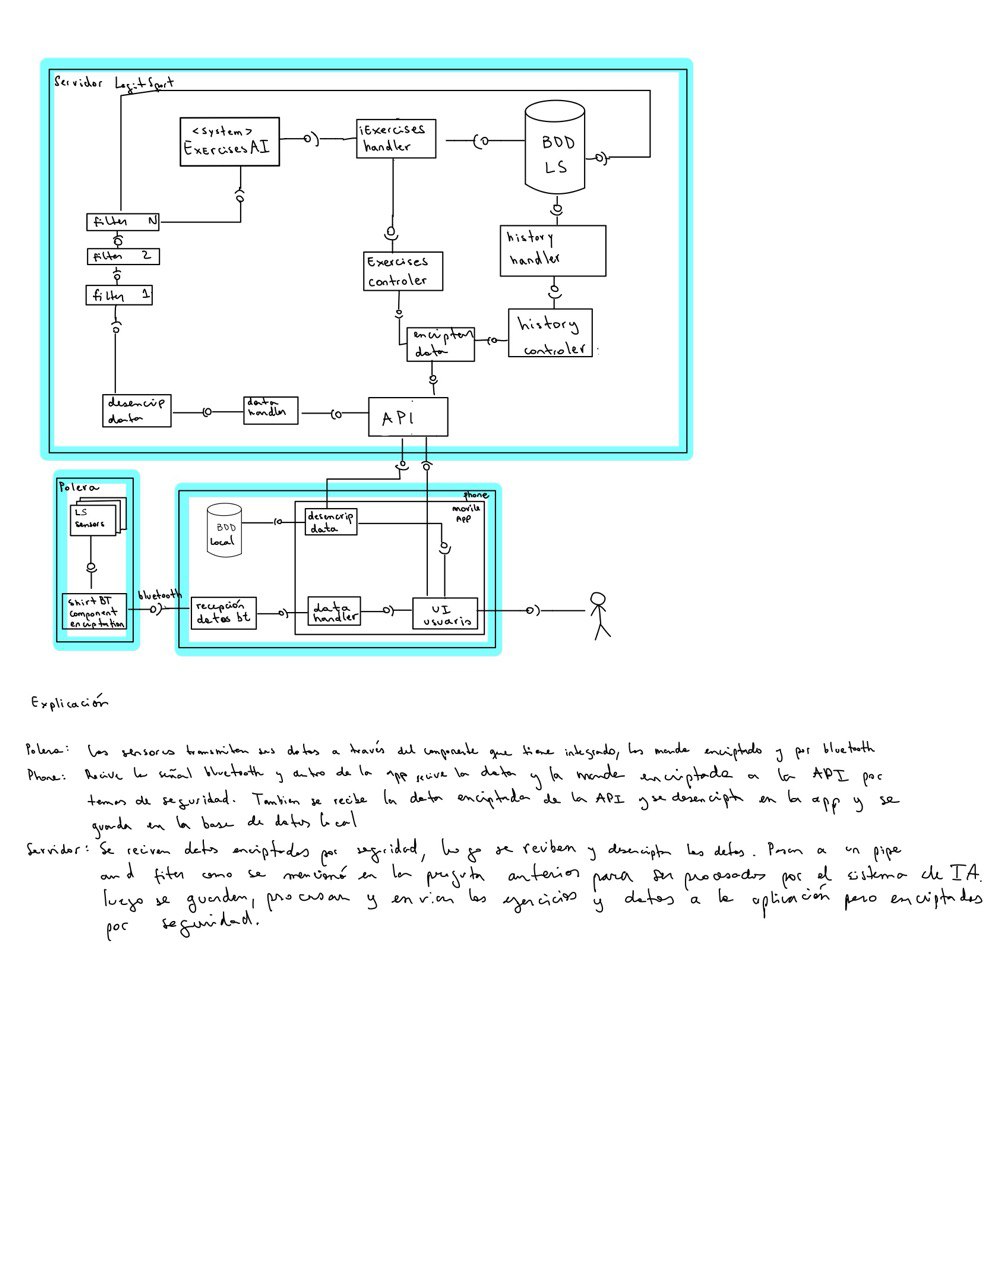 Servidor LegitSport
<system>
ExercisesAI
iExercises
handler
BDD
LS
filter N
filter 2
filter 1
history
handler
Exercises
controler
history
controler
encriptar
data
desencrip
data
data
handler
API
Polera
LS
sensors
shirt BT
component
encriptation
bluetooth
phone
movile
App
BDD
Local
desencrip
data
recepción
datos bt
data
handler
UI
usuario
Explicación
Polera: Los sensores transmiten sus datos a través del componente que tiene integrado, los manda encriptado y por bluetooth
Phone: Recive la señal bluetooth y dentro de la app recive la data y la manda encriptada a la API por
temas de seguridad. Tambien se recibe la data encriptada de la API y se desencripta en la app y se
guarda en la base de datos local
Servidor: Se reciven datos encriptados por seguridad, luego se reciben y desencriptan los datos. Pasan a un pipe
and filter como se mencionó en la pregunta anterior para ser procesados por el sistema de IA.
luego se guardan, procesan y envian los ejercicios y datos a la aplicación pero encriptados
por seguridad.